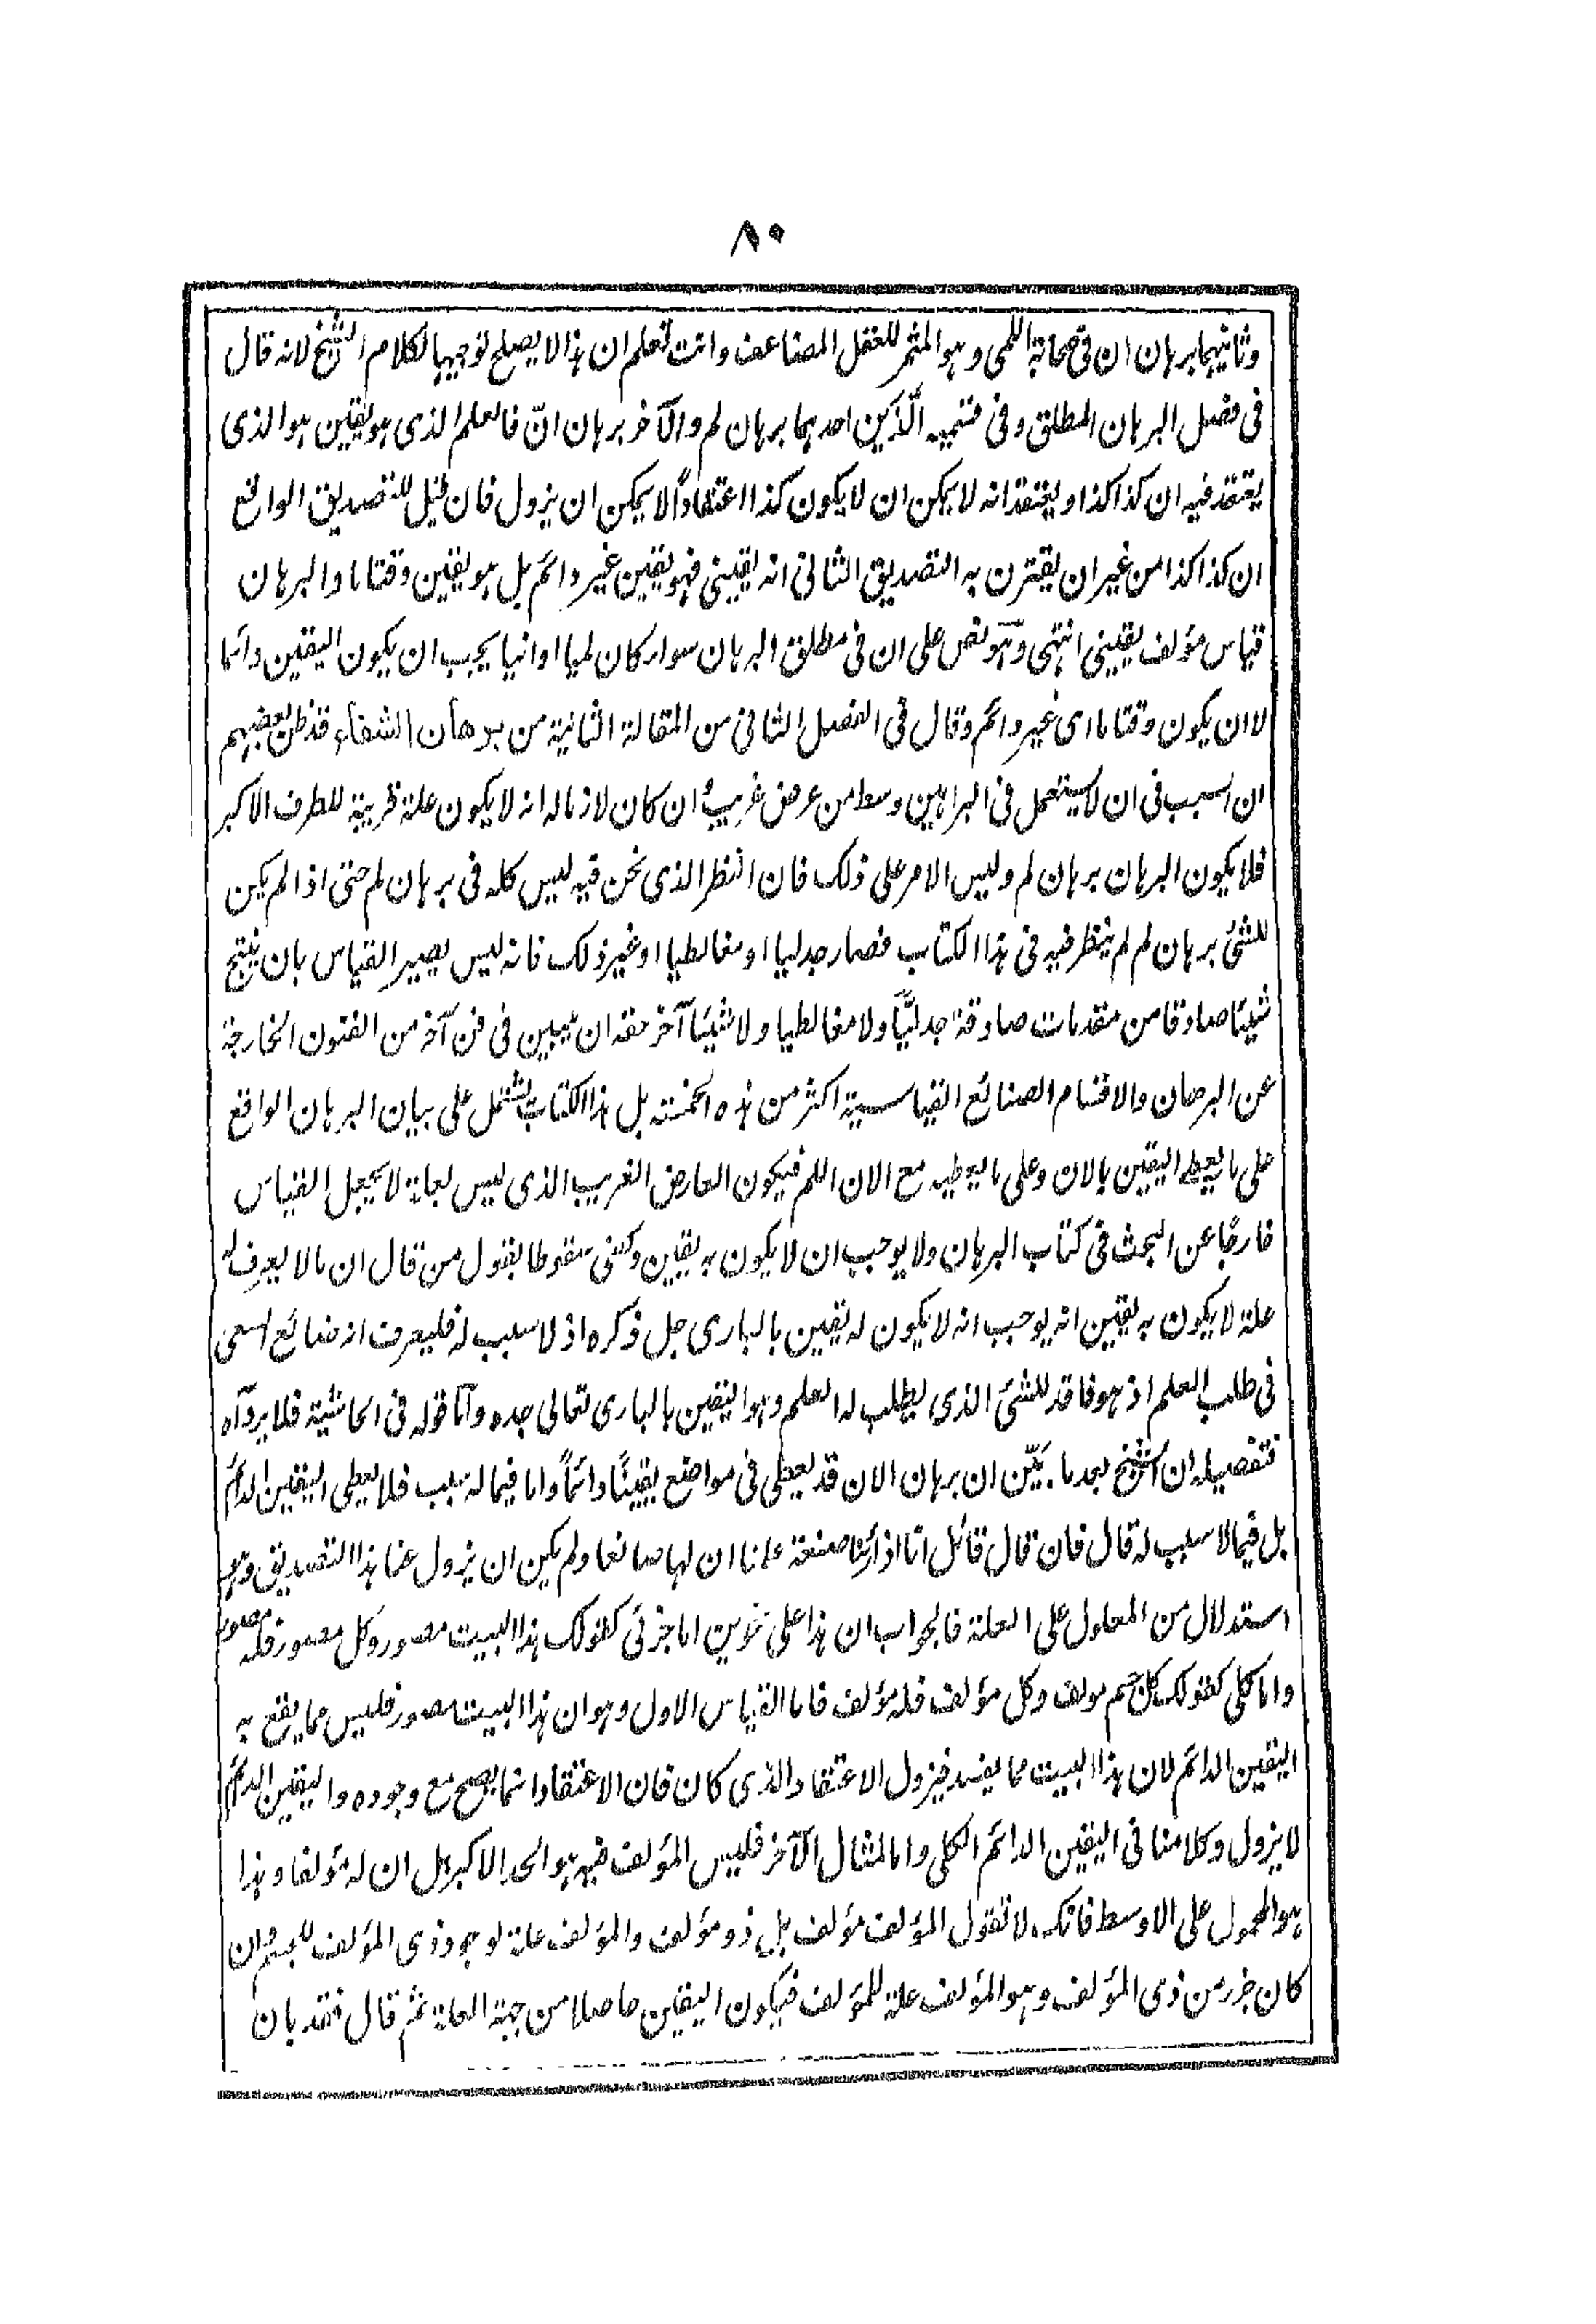 ٨٠
وثانيهما برهان ان فى صحابة اللمى وهو المثمر للعقل المضاعف وانت تعلم ان هذا لا يصلح توجيها لكلام الشيخ لانه قال
فى فصل البرهان المطلق وفى قسميه الّذين احدهما برهان لم والآخر برهان انّ فالعلم الذى هو يقين هو الذى
يعتقد فيه ان كذا كذا ويعتقد انه لا يمكن ان لا يكون كذا اعتقاداً لا يمكن ان يزول فان قيل للتصديق الواقع
ان كذا كذا من غير ان يقترن به التصديق الثانى انه يقينى فهو يقين غير دائم بل هو يقين وقتا ما والبرهان
قياس مؤلف يقينى انتهى وهو نص على ان فى مطلق البرهان سواء كان لميا او انيا يجب ان يكون اليقين دائما
لا ان يكون وقتا ما اى غير دائم وقال فى الفصل الثانى من المقالة الثانية من برهان الشفاء قد ظن بعضهم
ان السبب فى ان لا يستعمل فى البراهين وسط من عرض غريب وان كان لازما له انه لا يكون علة قريبة للطرف الاكبر
فلا يكون البرهان برهان لم وليس الامر على ذلك فان النظر الذى نحن فيه ليس كله فى برهان لم حتى اذا لم يكن
للشئ برهان لم لم ينظر فيه فى هذا الكتاب فصار جدليا او مغالطيا او غير ذلك فانه ليس يصير القياس بان ينتج
شيئا صادقا من مقدمات صادقة جدليّا ولا مغالطيا ولا شيئا آخر حقه ان يبين فى فن آخر من الفنون الخارجة
عن البرهان والاقسام الصنائع القياسية اكثر من هذه الخمسة بل هذا الكتاب يشتمل على بيان البرهان الواقع
على ما يعطى اليقين بالان وعلى ما يعطيه مع الان اللم فيكون العارض الغريب الذى ليس لعلة لا يجعل القياس
خارجًا عن البحث فى كتاب البرهان ولا يوجب ان لا يكون به يقين وكفى سقوطا بقول من قال ان ما لا يعرف له
علة لا يكون به يقين انه يوجب انه لا يكون له يقين بالبارى جل ذكره اذ لا سبب له فليعرف انه ضائع السعى
فى طلب العلم اذ هو فاقد للشئ الذى يطلب له العلم وهو اليقين بالبارى تعالى جده وامّا قوله فى الحاشية فلا يرد اه
فتفصيله ان الشيخ بعد ما بيّن ان برهان الان قد يعطى فى مواضع يقينًا دائمًا واما فيما له سبب فلا يعطى اليقين الدائم
بل فيما لا سبب له قال فان قال قائل انا اذا رئينا صنعة علمنا ان لها صانعا ولم يكن ان يزول عنا هذا التصديق وهو
استدلال من المعلول على العلة فالجواب ان هذا على نحوين اما جزئى كقولك هذا البيت مصور وكل مصور فله مصور
واما كلى كقولك كل جسم مولف وكل مؤلف فله مؤلف فاما القياس الاول وهو ان هذا البيت مصور فليس مما يقع به
اليقين الدائم لان هذا البيت مما يفسد فيزول الاعتقاد الذى كان فان الاعتقاد انما يصح مع وجوده واليقين الدائم
لا يزول وكلامنا فى اليقين الدائم الكلى واما المثال الآخر فليس المؤلف فيه هو الحد الاكبر بل ان له مؤلفا وهذا
هو المحمول على الاوسط فانك لا تقول المؤلف مؤلف بل ذو مؤلف والمؤلف علة لوجود ذى المؤلف للجسم وان
كان جزء من ذى المؤلف وهو المؤلف علة للمؤلف فيكون اليقين حاصلا من جهة العلة ثم قال فقد بان